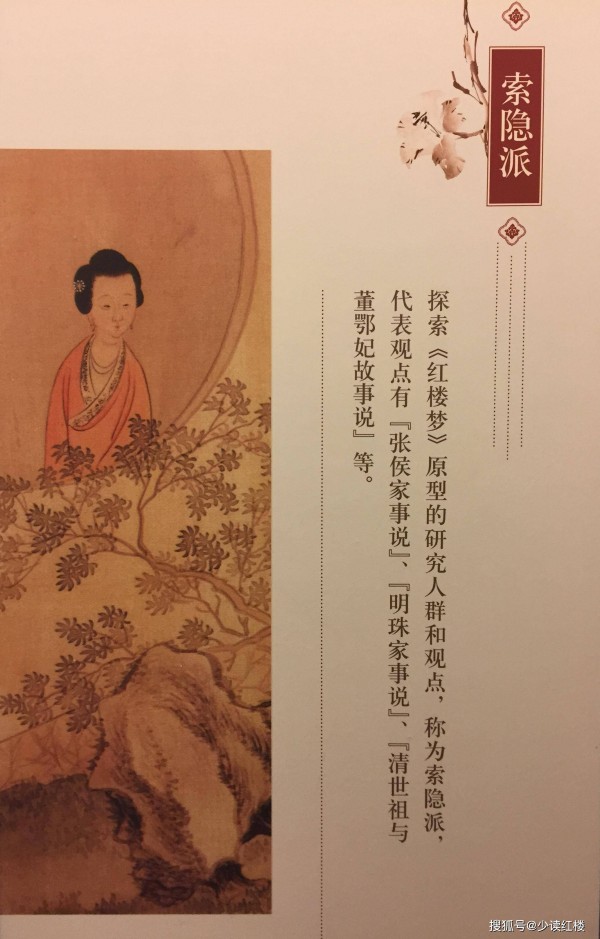 索隐派
探索《红楼梦》原型的研究人群和观点，称为索隐派，
代表观点有『张侯家事说』、『明珠家事说』、『清世祖与
董鄂妃故事说』等。
搜狐号@少读红楼